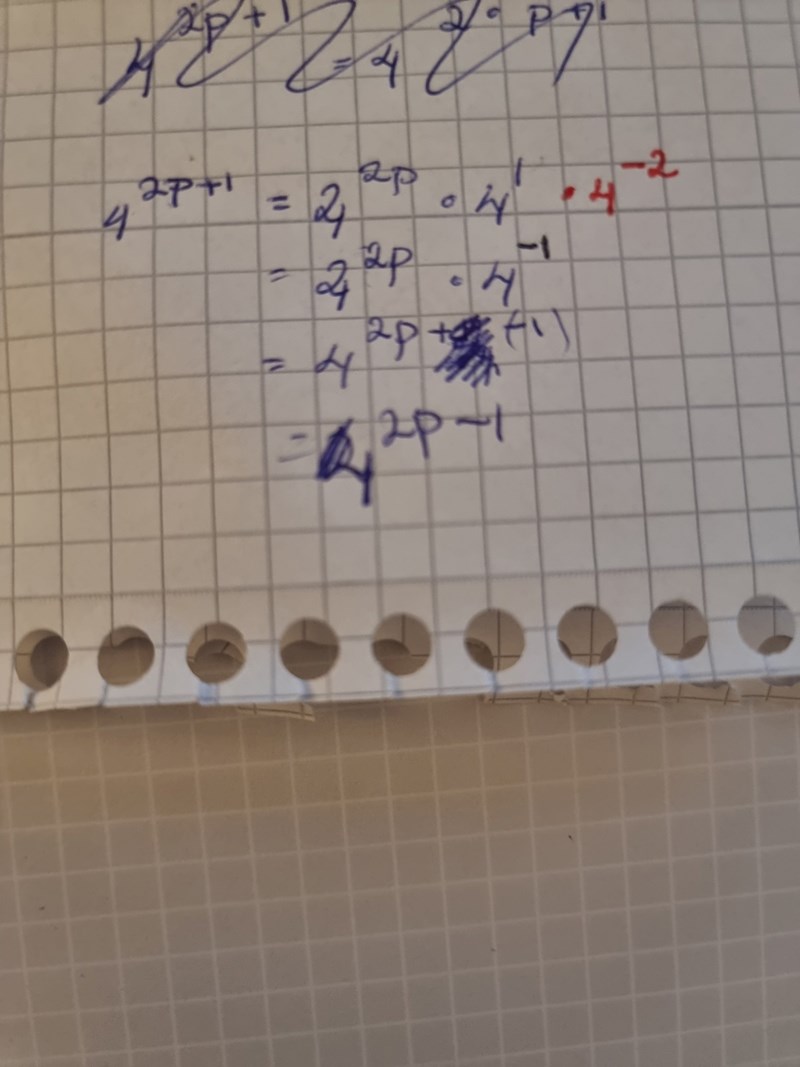 4^{2p+1} = 4^{2 · p+1}
4^{2p+1} = 4^{2p} · 4^1 · 4^{-2}
= 4^{2p} · 4^{-1}
= 4^{2p+(-1)}
= 4^{2p-1}